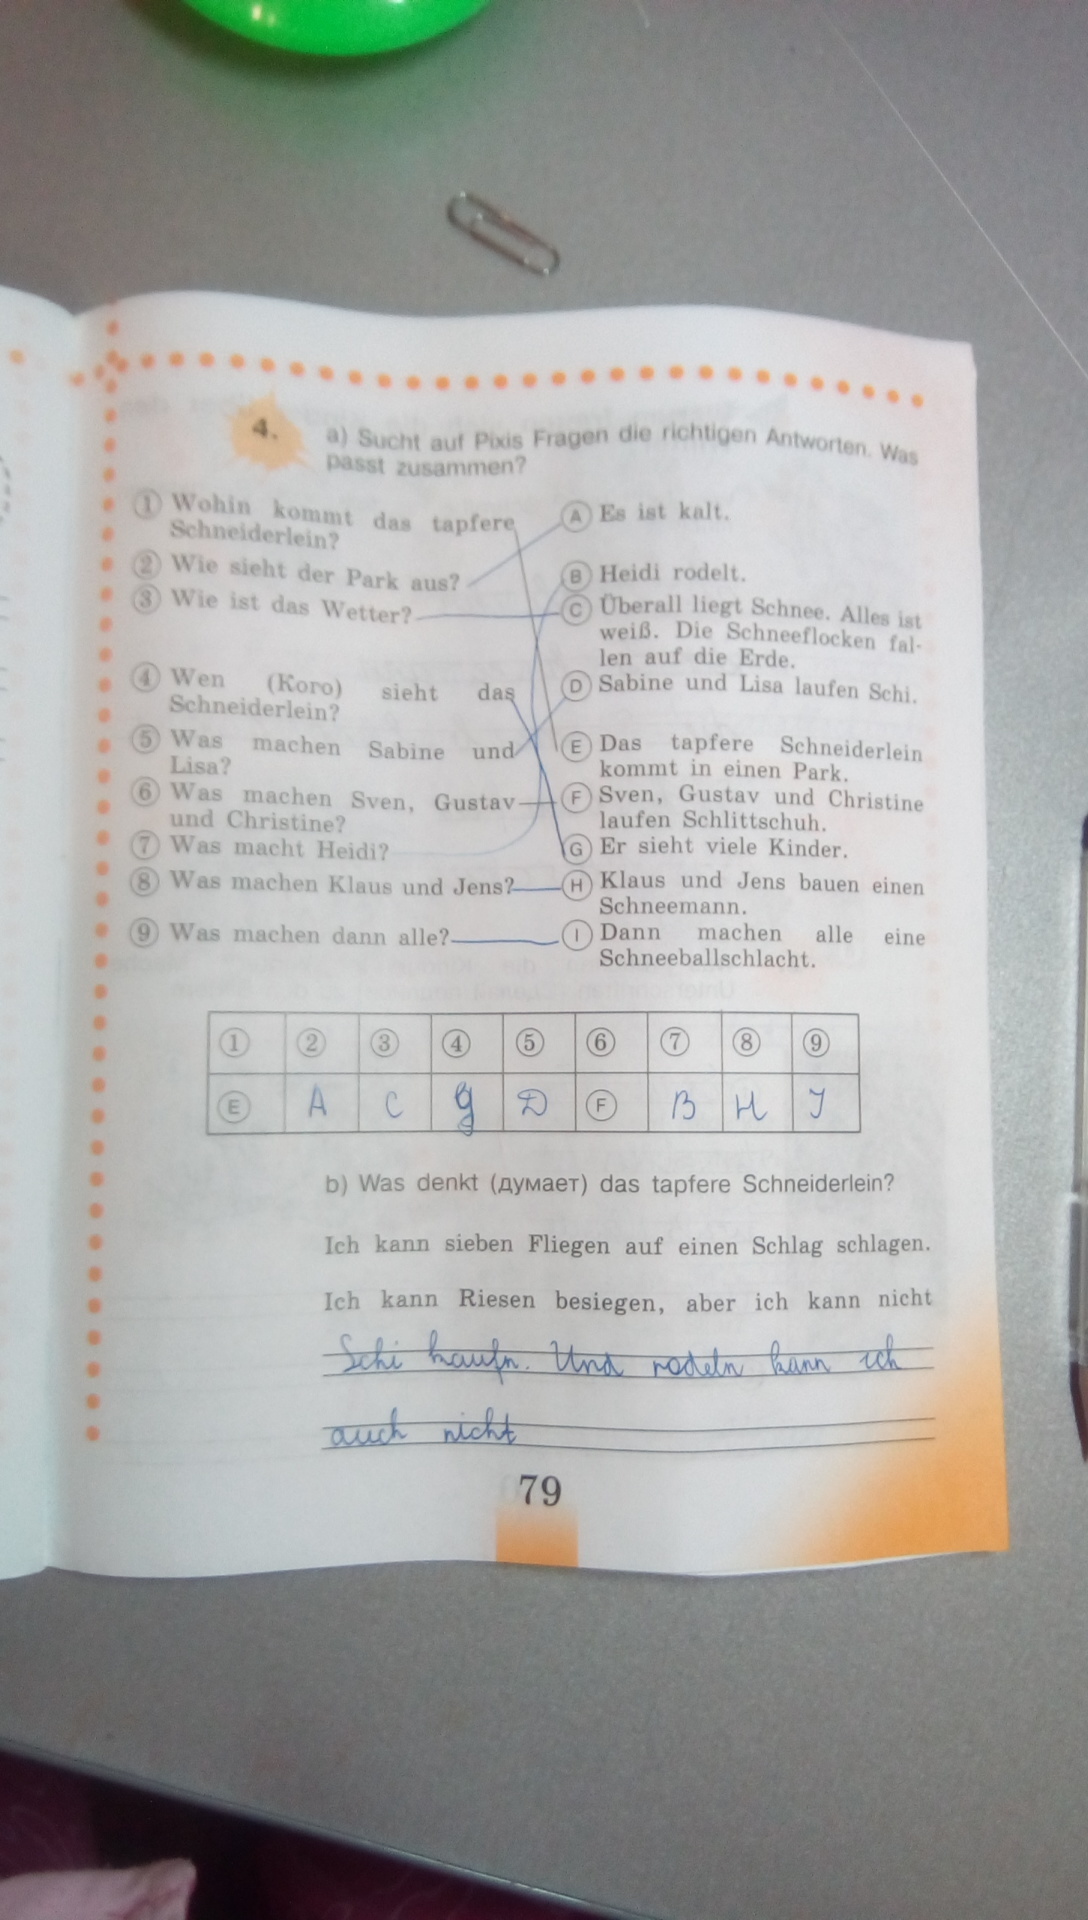 4.
a) Sucht auf Pixis Fragen die richtigen Antworten. Was
passt zusammen?
① Wohin kommt das tapfere
Schneiderlein?
② Wie sieht der Park aus?
③ Wie ist das Wetter?
④ Wen (Koro) sieht das
Schneiderlein?
⑤ Was machen Sabine und
Lisa?
⑥ Was machen Sven, Gustav
und Christine?
⑦ Was macht Heidi?
⑧ Was machen Klaus und Jens?
⑨ Was machen dann alle?
Ⓐ Es ist kalt.
Ⓑ Heidi rodelt.
Ⓒ Überall liegt Schnee. Alles ist
weiß. Die Schneeflocken fal-
len auf die Erde.
Ⓓ Sabine und Lisa laufen Schi.
Ⓔ Das tapfere Schneiderlein
kommt in einen Park.
Ⓕ Sven, Gustav und Christine
laufen Schlittschuh.
Ⓖ Er sieht viele Kinder.
Ⓗ Klaus und Jens bauen einen
Schneemann.
Ⓘ Dann machen alle eine
Schneeballschlacht.
① ② ③ ④ ⑤ ⑥ ⑦ ⑧ ⑨
Ⓔ A C G D Ⓕ B H I
b) Was denkt (думает) das tapfere Schneiderlein?
Ich kann sieben Fliegen auf einen Schlag schlagen.
Ich kann Riesen besiegen, aber ich kann nicht
Schi kaufn. Und rodeln kann ich
auch nicht
79